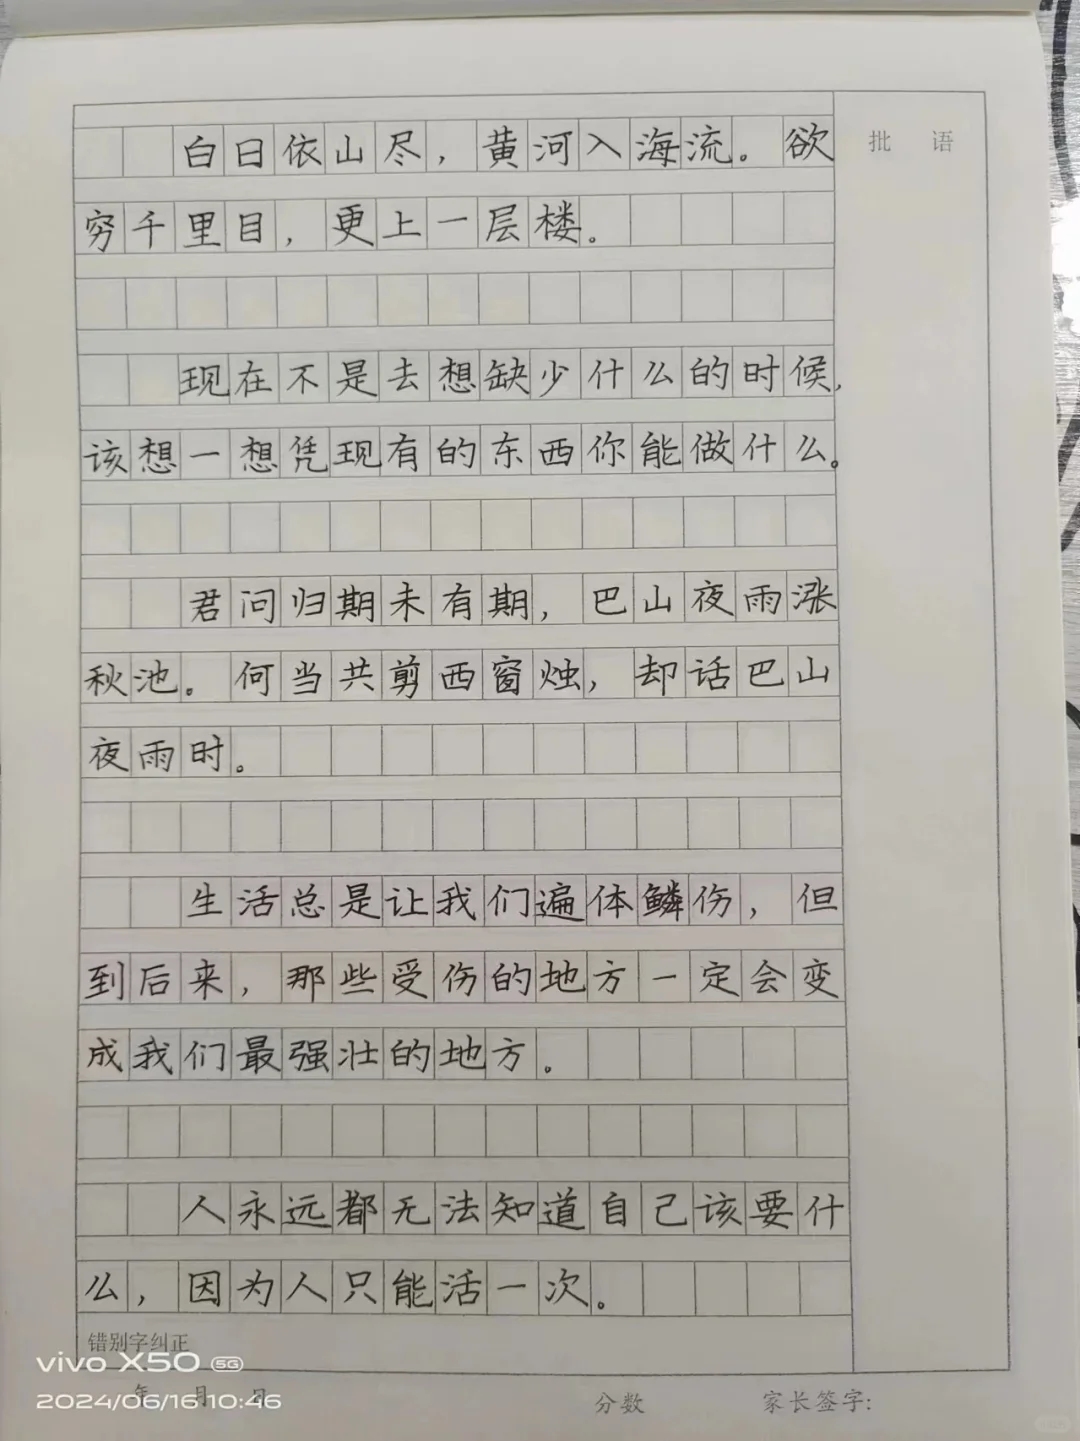 白日依山尽，黄河入海流。欲
批 语
穷千里目，更上一层楼。
现在不是去想缺少什么的时候，
该想一想凭现有的东西你能做什么。
君问归期未有期，巴山夜雨涨
秋池。何当共剪西窗烛，却话巴山
夜雨时。
生活总是让我们遍体鳞伤，但
到后来，那些受伤的地方一定会变
成我们最强壮的地方。
人永远都无法知道自己该要什
么，因为人只能活一次。
错别字纠正
vivo X50 5G
年 月 日
2024/06/16 10:46
分数
家长签字: